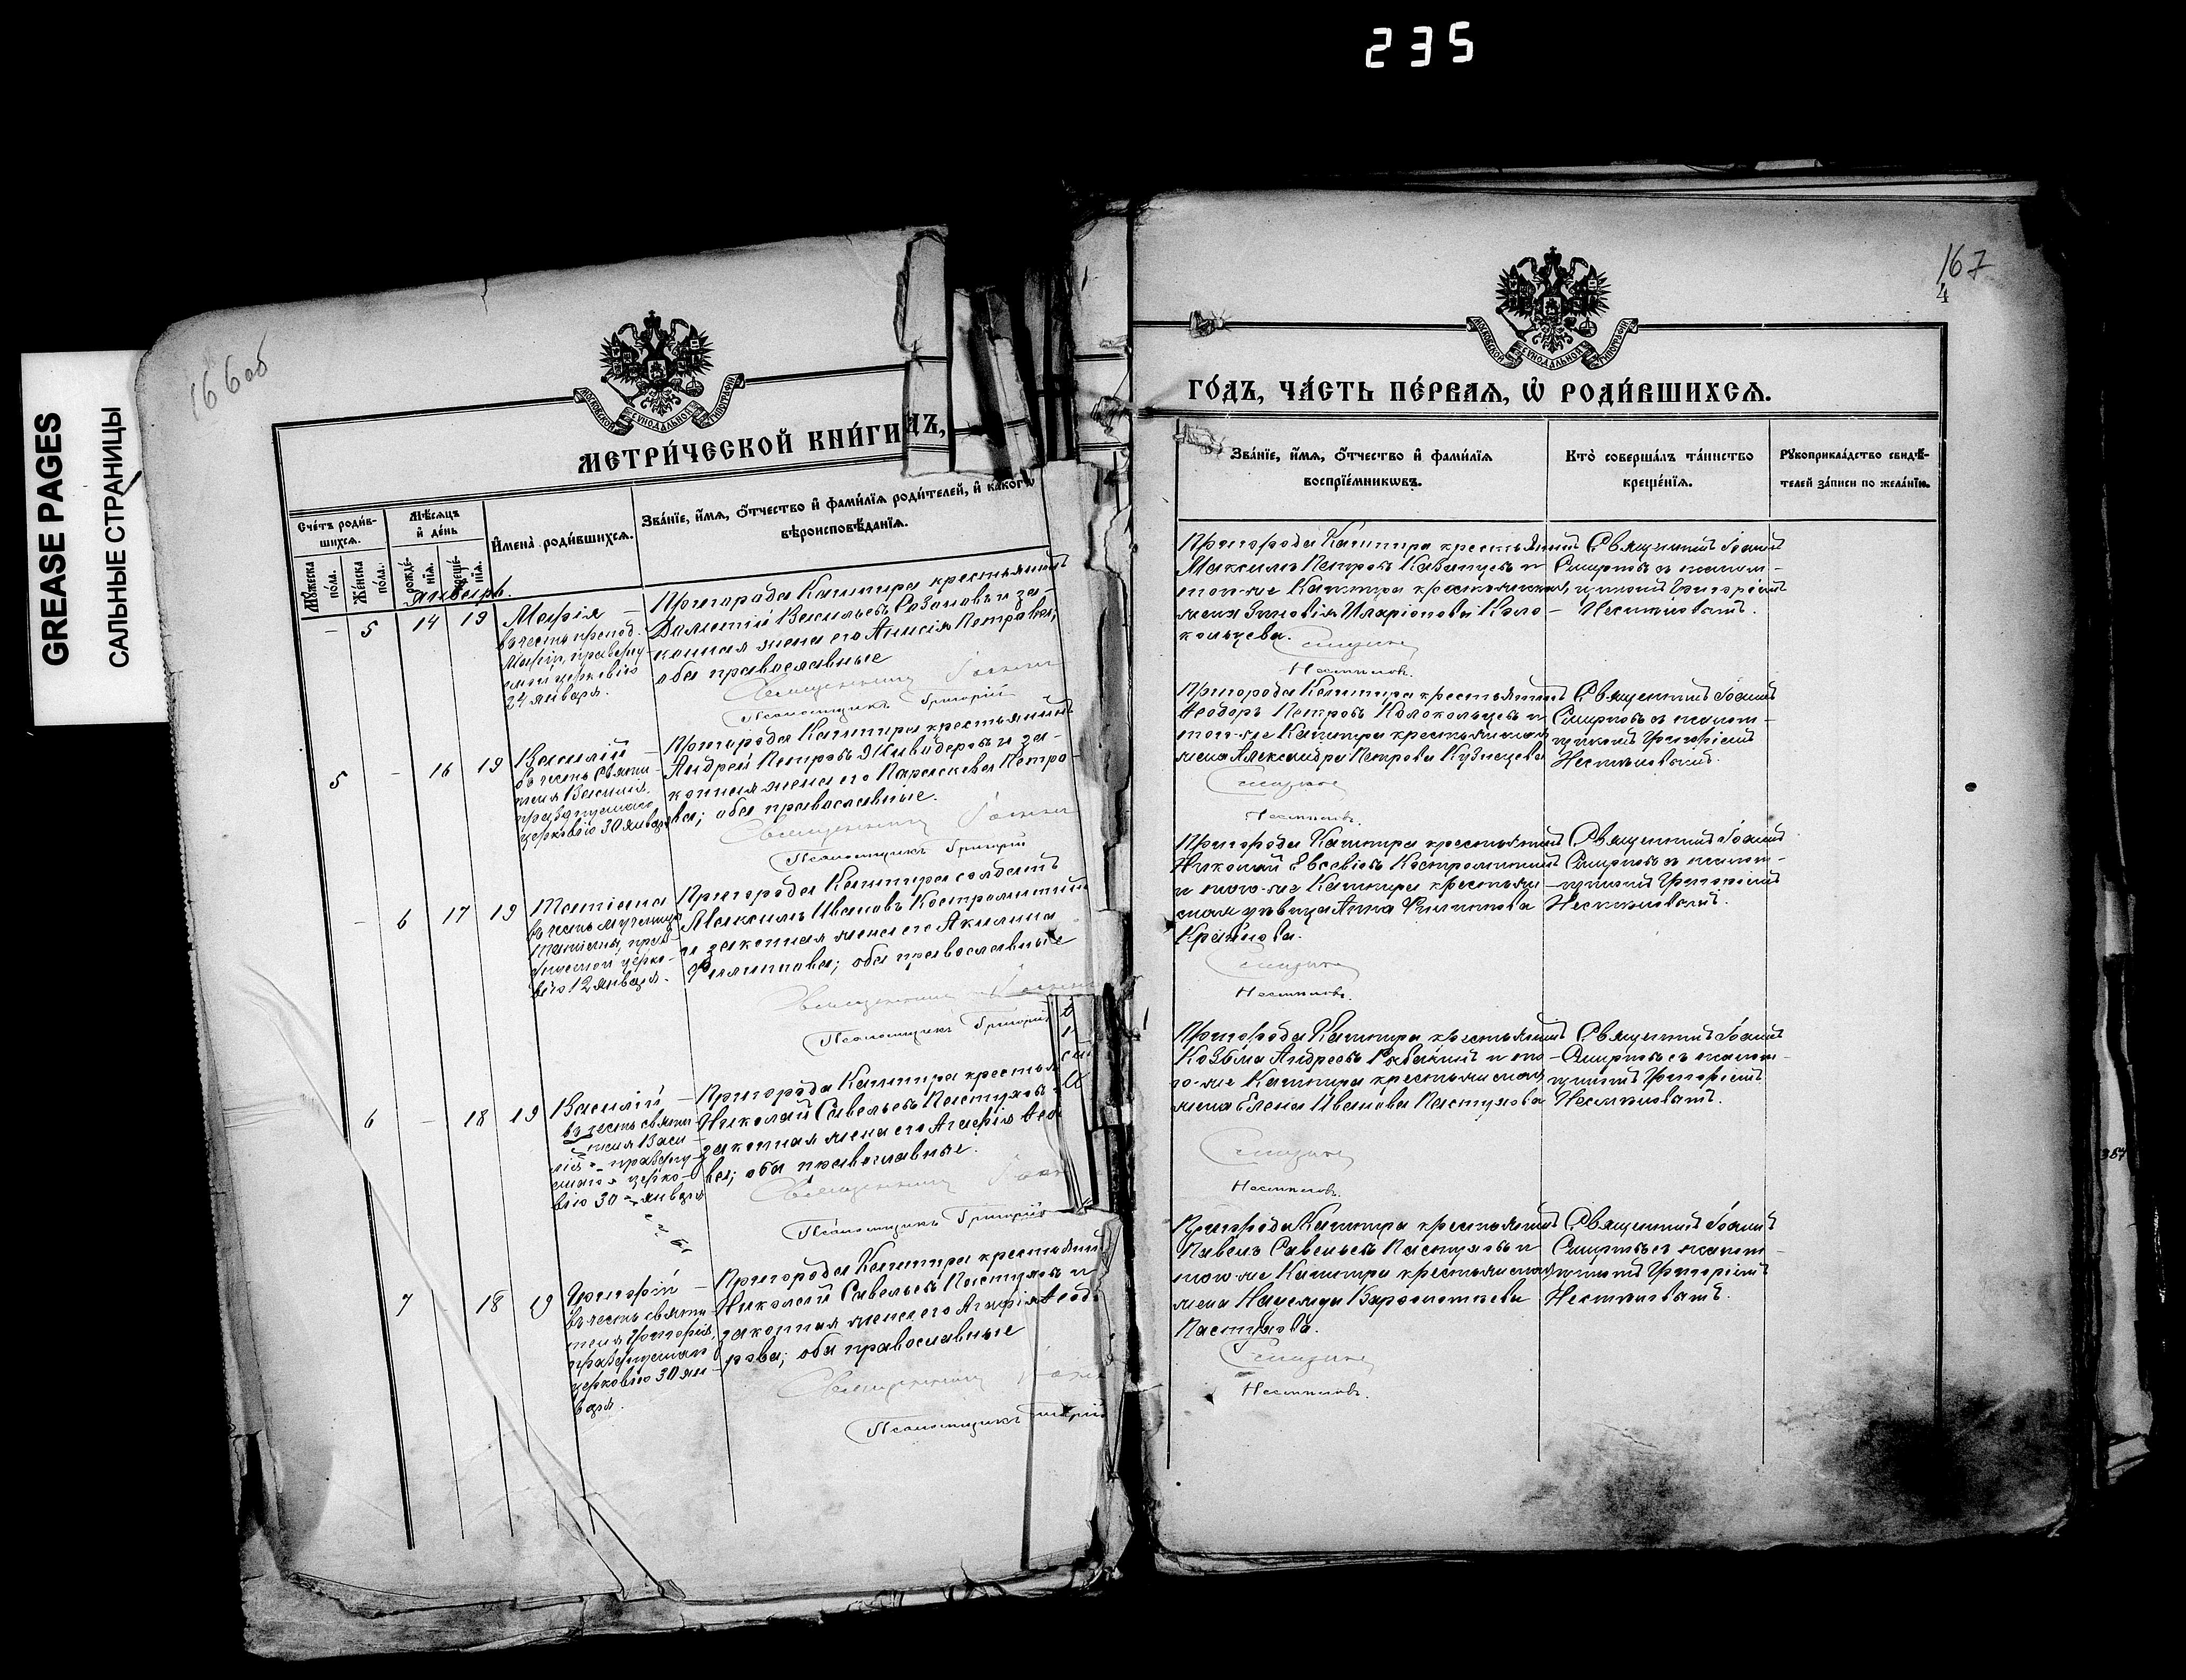 235
GREASE PAGES
САЛЬНЫЕ СТРАНИЦЫ
166об
МОСКОВСКОЙ СѴНОДАЛЬНОЙ ТИПОГРАФІИ
МЕТРИ́ЧЕСКОЙ КНИ́ГИ
Сче́тъ роди́в-
шихсѧ.
Мѣ́сѧцъ
и҆ де́нь
И҆мена̀ роди́вшихсѧ.
Зва́нїе, и҆́мѧ, ѻ҆́тчество и҆ фами́лїѧ роди́телей, и҆ како́гѡ
вѣроисповѣ́данїѧ.
Мꙋ́жеска
по́ла.
Же́нска
по́ла.
рожде́-
нїѧ.
креще́-
нїѧ.
Январь.
- 5 14 19
Марія
въ честь препод.
Маріи, праздну-
емой церковію
24 января.
Пригорода Каштира крестьянинъ
Василій Васильевъ и за-
конная жена его Анисія Петрова,
оба православные
Священникъ Іоаннъ
Псаломщикъ Григорій
5 - 16 19
Василій
въ честь святи-
теля Василія,
празднуемаго
церковію 30 января
Пригорода Каштира крестьянинъ
Андрей Петровъ и за-
конная жена его Параскева Петро-
ва; оба православные.
Священникъ Іоаннъ
Псаломщикъ Григорій
- 6 17 19
Татіана
въ честь мученицы
Татіаны, празд-
нуемой церко-
вію 12 января.
Пригорода Каштира солдатъ
Максимъ Ивановъ Костромитинъ
и законная жена его Акилина
Филиппова; оба православные
Священникъ Іоаннъ
Псаломщикъ Григорій
6 - 18 19
Василій
въ честь святи-
теля Васи-
лія праздну-
емаго церко-
вію 30 января
Пригорода Каштира крестья
Николай Савельевъ Пастуховъ
законная жена его Агафія Ѳео
ва; оба православные.
Священникъ Іоан
Псаломщикъ Григорій
7 18 19
Григорій
въ честь святи-
теля Григорія,
празднуемаго
церковію 30 ян-
варя.
Пригорода Каштира крестьянин
Николай Савельевъ Пастуховъ и
законная жена его Агафія Ѳеодо
рова; оба православные
Священникъ Іоан
Псаломщикъ Григорій
167
4
МОСКОВСКОЙ СѴНОДАЛЬНОЙ ТИПОГРАФІИ
ГО́ДЪ, ЧА́СТЬ ПЕ́РВАѦ, Ѡ҆ РОДИ́ВШИХСѦ.
Зва́нїе, и҆́мѧ, ѻ҆́тчество и҆ фами́лїѧ
воспрїе́мникѡвъ.
Кто̀ соверша́лъ та́инство
креще́нїѧ.
Рꙋкоприкла́дство свидѣ́-
телей за́писи по жела́нїю.
Пригорода Каштира крестьянинъ
Максимъ Петровъ Казанцевъ и
того-же Каштира крестьянская
жена Зиновія Иларіонова Коло-
кольцева.
Священникъ Іоаннъ
Смирновъ съ псалом-
щикомъ Григоріемъ
Смирновъ
Пригорода Каштира крестьянинъ
Ѳеодоръ Петровъ Колокольцевъ и
того-же Каштира крестьянская
жена Александра Петрова Кузнецова
Священникъ Іоаннъ
Смирновъ съ псалом-
щикомъ Григоріемъ
Смирновъ
Пригорода Каштира крестьянинъ
Николай Евсевіевъ Костромитинъ
и того-же Каштира крестьян-
ская дѣвица Анна Филиппова
Крайнова.
Священникъ Іоаннъ
Смирновъ съ псалом-
щикомъ Григоріемъ
Смирновъ
Пригорода Каштира крестьянинъ
Козьма Андреевъ и то-
го-же Каштира крестьянская
жена Елена Иванова Пастухова
Священникъ Іоаннъ
Смирновъ съ псалом-
щикомъ Григоріемъ
Смирновъ
Пригорода Каштира крестьянинъ
Павелъ Савельевъ Пастуховъ и
того-же Каштира крестьянская
жена Надежда
Пастухова.
Священникъ Іоаннъ
Смирновъ съ псалом-
щикомъ Григоріемъ
Смирновъ